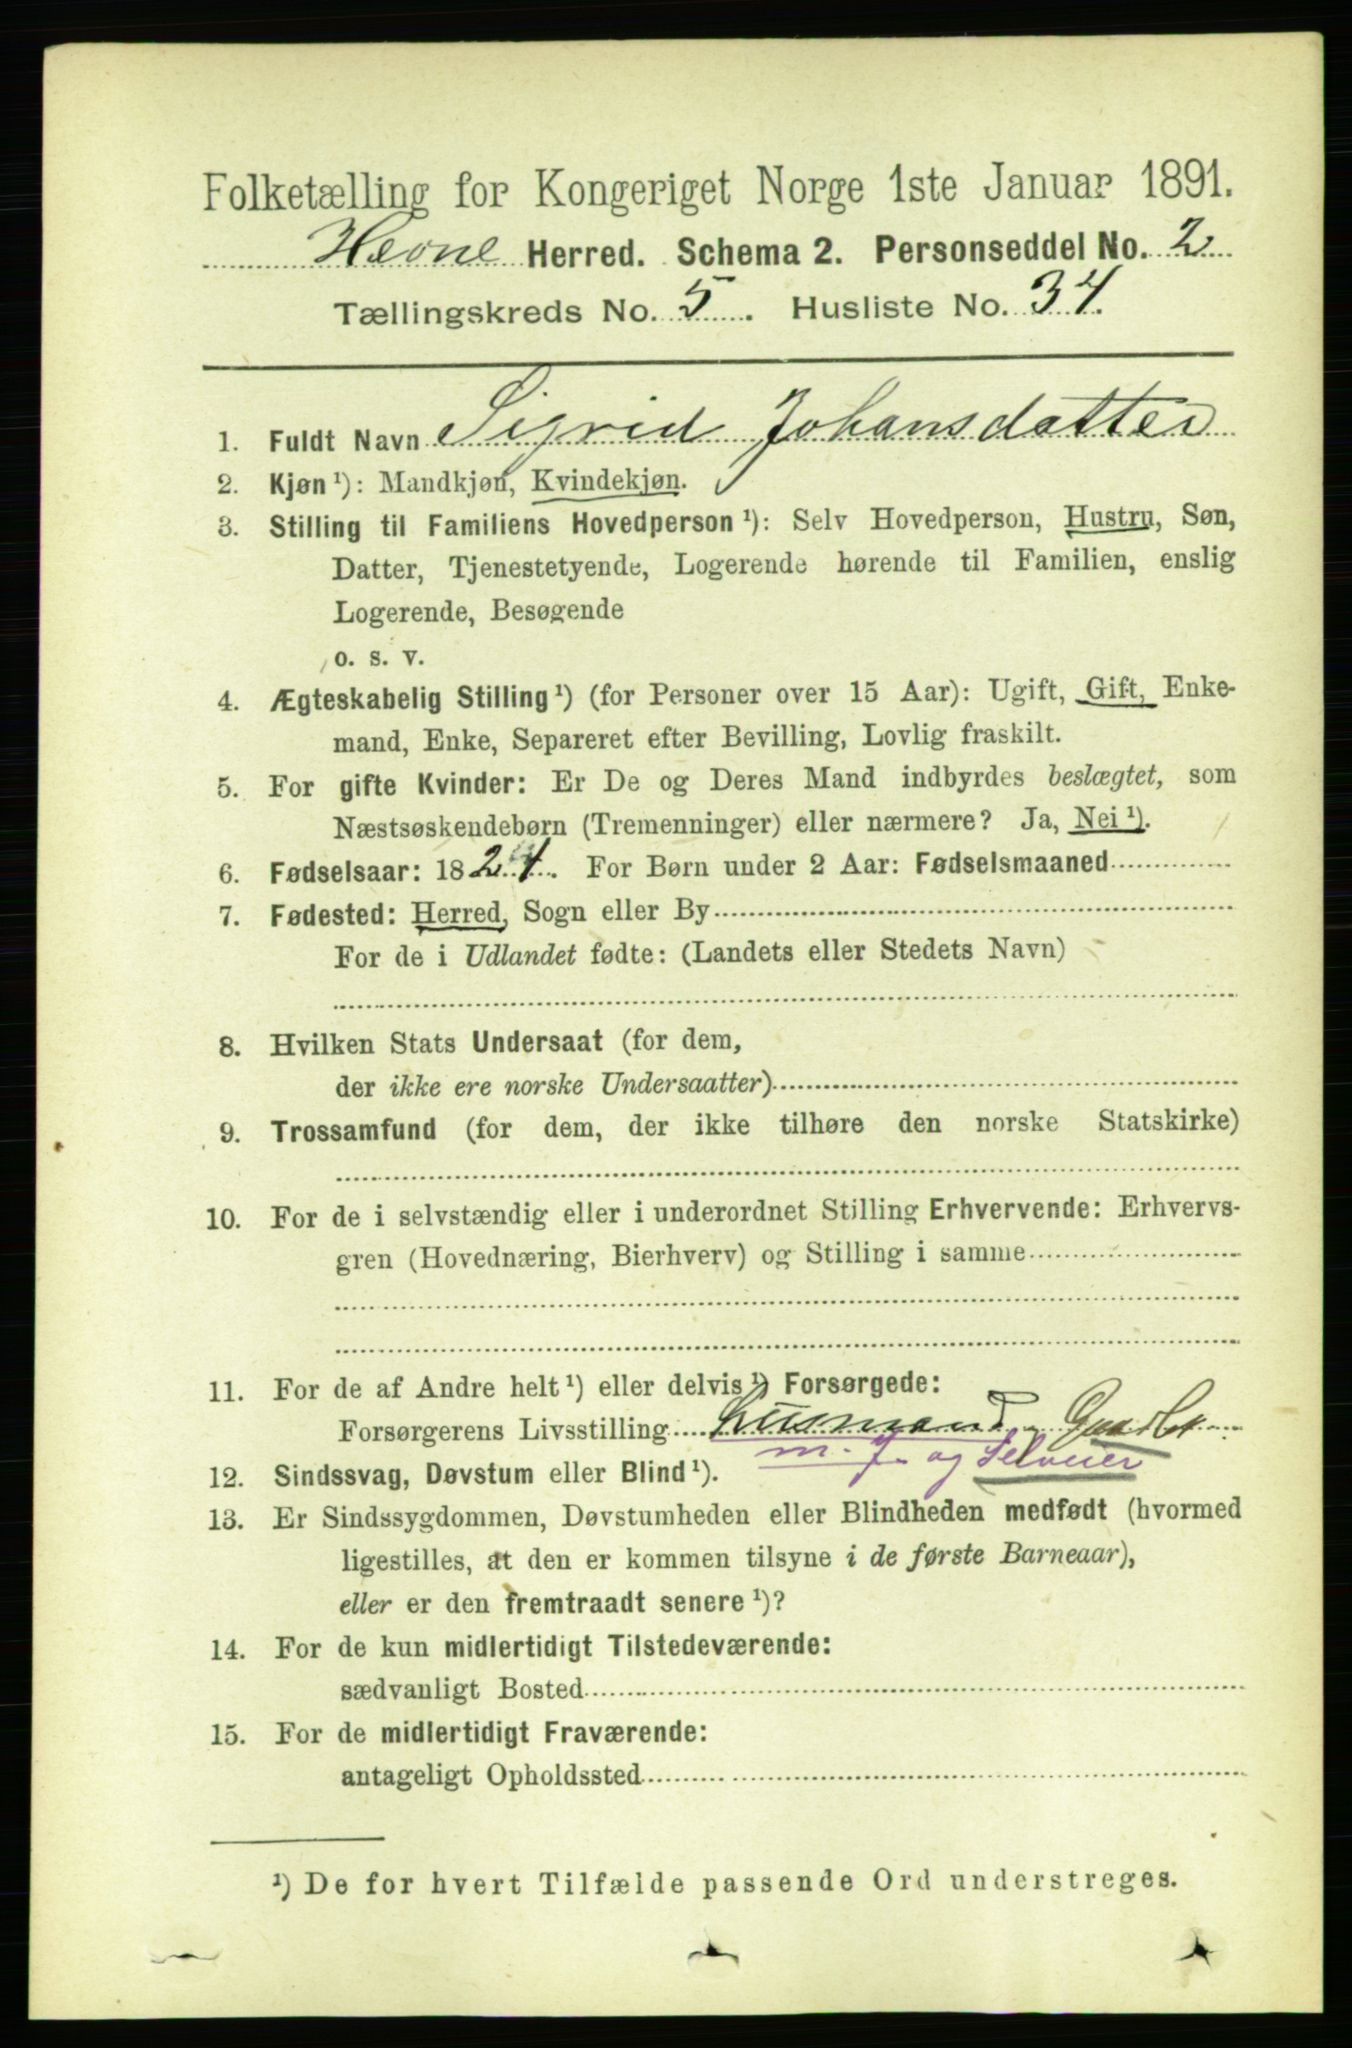 Folketælling for Kongeriget Norge 1ste Januar 1891.
Hevne Herred. Schema 2. Personseddel No. 2
Tællingskreds No. 5. Husliste No. 34.
1. Fuldt Navn Sigrid Johansdatter
2. Kjøn ¹): Mandkjøn, Kvindekjøn.
3. Stilling til Familiens Hovedperson ¹): Selv Hovedperson, Hustru, Søn,
Datter, Tjenestetyende, Logerende hørende til Familien, enslig
Logerende, Besøgende
o. s. v.
4. Ægteskabelig Stilling ¹) (for Personer over 15 Aar): Ugift, Gift, Enke-
mand, Enke, Separeret efter Bevilling, Lovlig fraskilt.
5. For gifte Kvinder: Er De og Deres Mand indbyrdes beslægtet, som
Næstsøskendebørn (Tremenninger) eller nærmere? Ja, Nei ¹).
6. Fødselsaar: 1824. For Børn under 2 Aar: Fødselsmaaned
7. Fødested: Herred, Sogn eller By
For de i Udlandet fødte: (Landets eller Stedets Navn)
8. Hvilken Stats Undersaat (for dem,
der ikke ere norske Undersaatter)
9. Trossamfund (for dem, der ikke tilhøre den norske Statskirke)
10. For de i selvstændig eller i underordnet Stilling Erhvervende: Erhvervs-
gren (Hovednæring, Bierhverv) og Stilling i samme
11. For de af Andre helt ¹) eller delvis ¹) Forsørgede:
Forsørgerens Livsstilling Husmand
m. J. og Selveier
12. Sindssvag, Døvstum eller Blind ¹).
13. Er Sindssygdommen, Døvstumheden eller Blindheden medfødt (hvormed
ligestilles, at den er kommen tilsyne i de første Barneaar),
eller er den fremtraadt senere ¹)?
14. For de kun midlertidigt Tilstedeværende:
sædvanligt Bosted
15. For de midlertidigt Fraværende:
antageligt Opholdssted
¹) De for hvert Tilfælde passende Ord understreges.